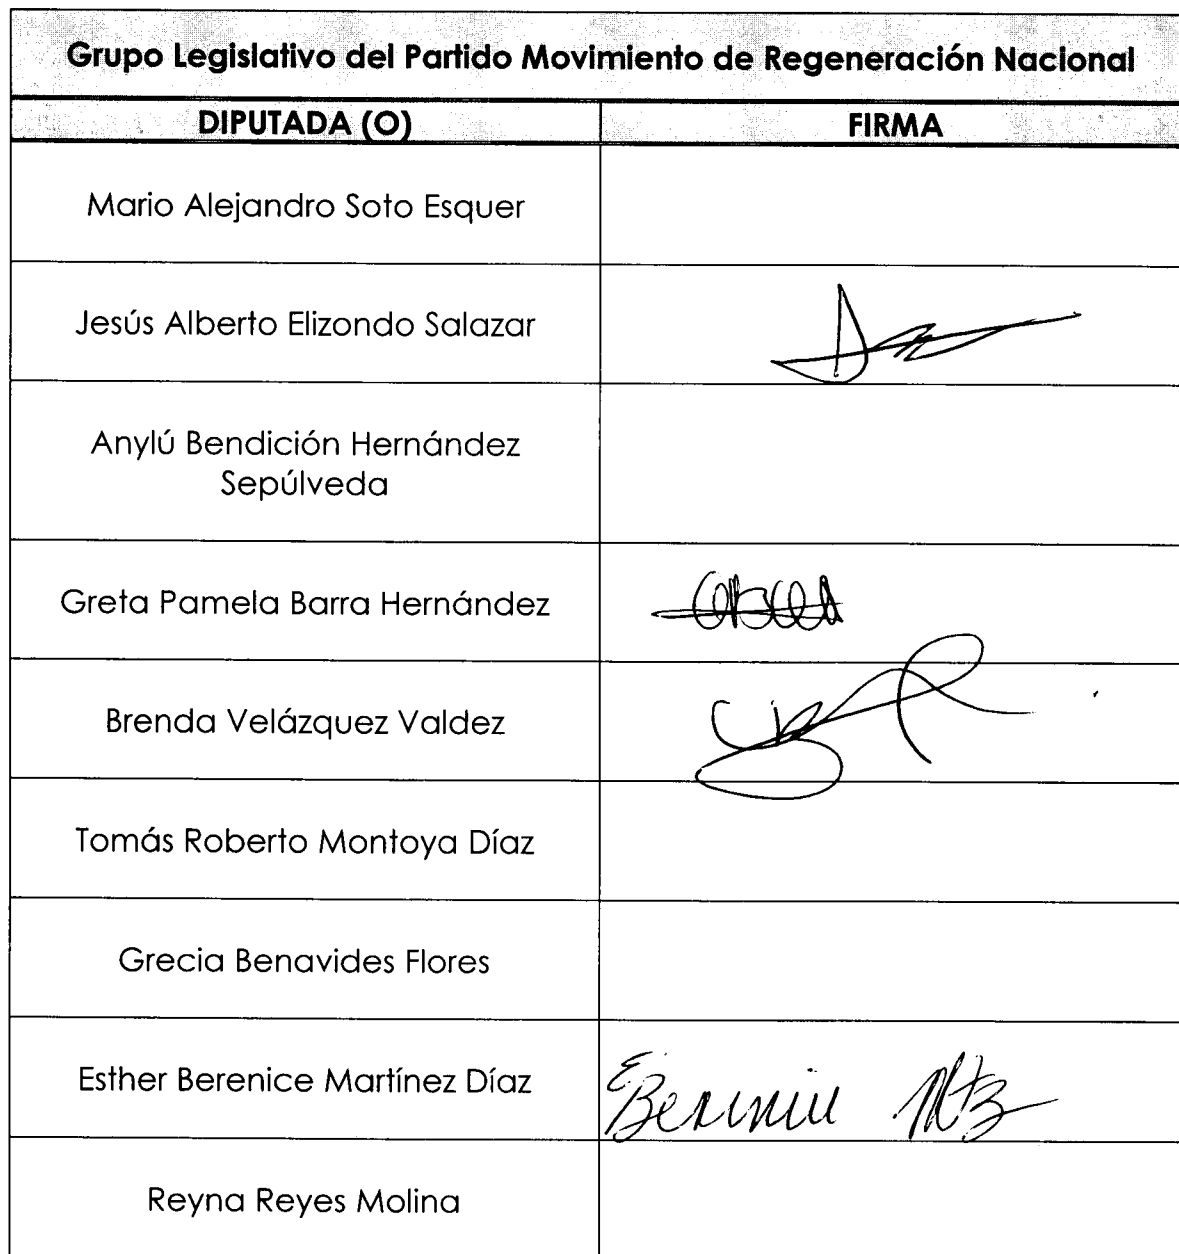 Grupo Legislativo del Partido Movimiento de Regeneración Nacional
DIPUTADA (O) FIRMA
Mario Alejandro Soto Esquer
Jesús Alberto Elizondo Salazar
Anylú Bendición Hernández
Sepúlveda
Greta Pamela Barra Hernández
Brenda Velázquez Valdez
Tomás Roberto Montoya Díaz
Grecia Benavides Flores
Esther Berenice Martínez Díaz E Berenice Mtz
Reyna Reyes Molina